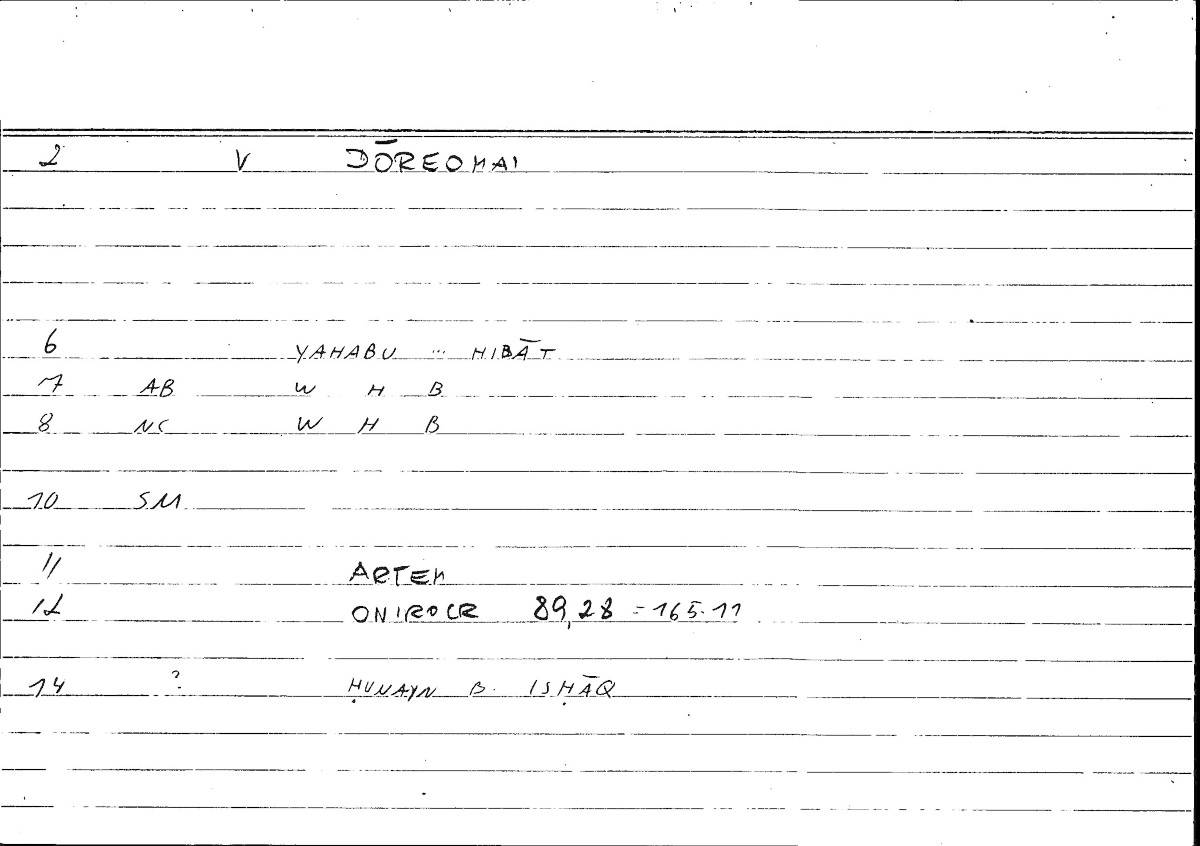 2 V DŌREOMAI
6 YAHABU ... HIBĀT
7 AB W H B
8 NC W H B
10 SM
11 ARTEM
12 ONIROCR 89,28 = 165.11
14 ? ḤUNAYN B. ISḤĀQ